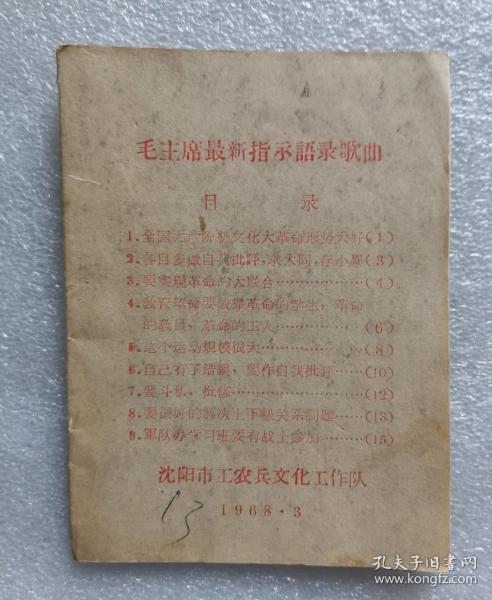 毛主席最新指示語录歌曲
目 录
1、全国无产阶级文化大革命形势大好(1)
2、各自多做自我批評,求大同,存小異(3)
3、要实現革命的大联合………………(4)
4、教育革命要依靠革命的学生,革命
的教員,革命的工人………………(6)
5、这个运动規模很大…………………(8)
6、自己有了錯誤,要作自我批評……(10)
7、要斗私,批修………………………(12)
8、要很好的解决上下級关系問題……(13)
9、軍队办学习班要有战士参加………(15)
沈阳市工农兵文化工作队
1968·3
13
孔夫子旧书网
kongfz.com